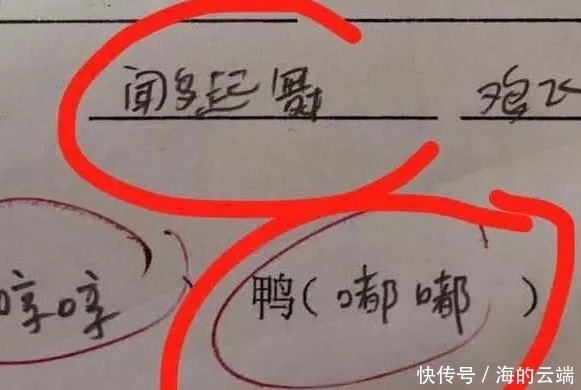 闻鸡起舞 鸡飞
哼哼 鸭（嘟嘟）
快传号／海的云端